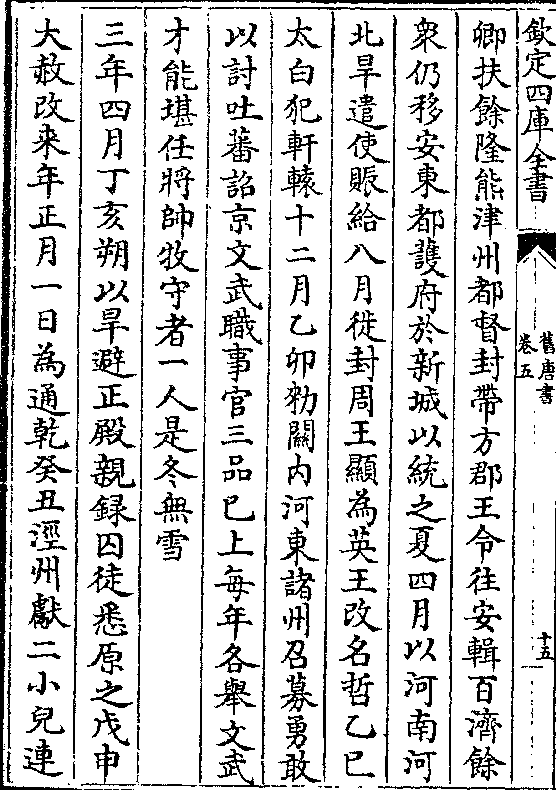 欽定四庫全書
舊唐書
卷五
十五
卿扶餘隆熊津州都督封帶方郡王令往安輯百濟餘
衆仍移安東都護府於新城以統之夏四月以河南河
北旱遣使賑給八月徙封周王顯為英王改名哲乙巳
太白犯軒轅十二月乙卯勑關内河東諸州召募勇敢
以討吐蕃詔京文武職事官三品已上每年各舉文武
才能堪任將帥牧守者一人是冬無雪
三年四月丁亥朔以旱避正殿親録囚徒悉原之戊申
大赦改来年正月一日為通乾癸丑涇州獻二小兒連